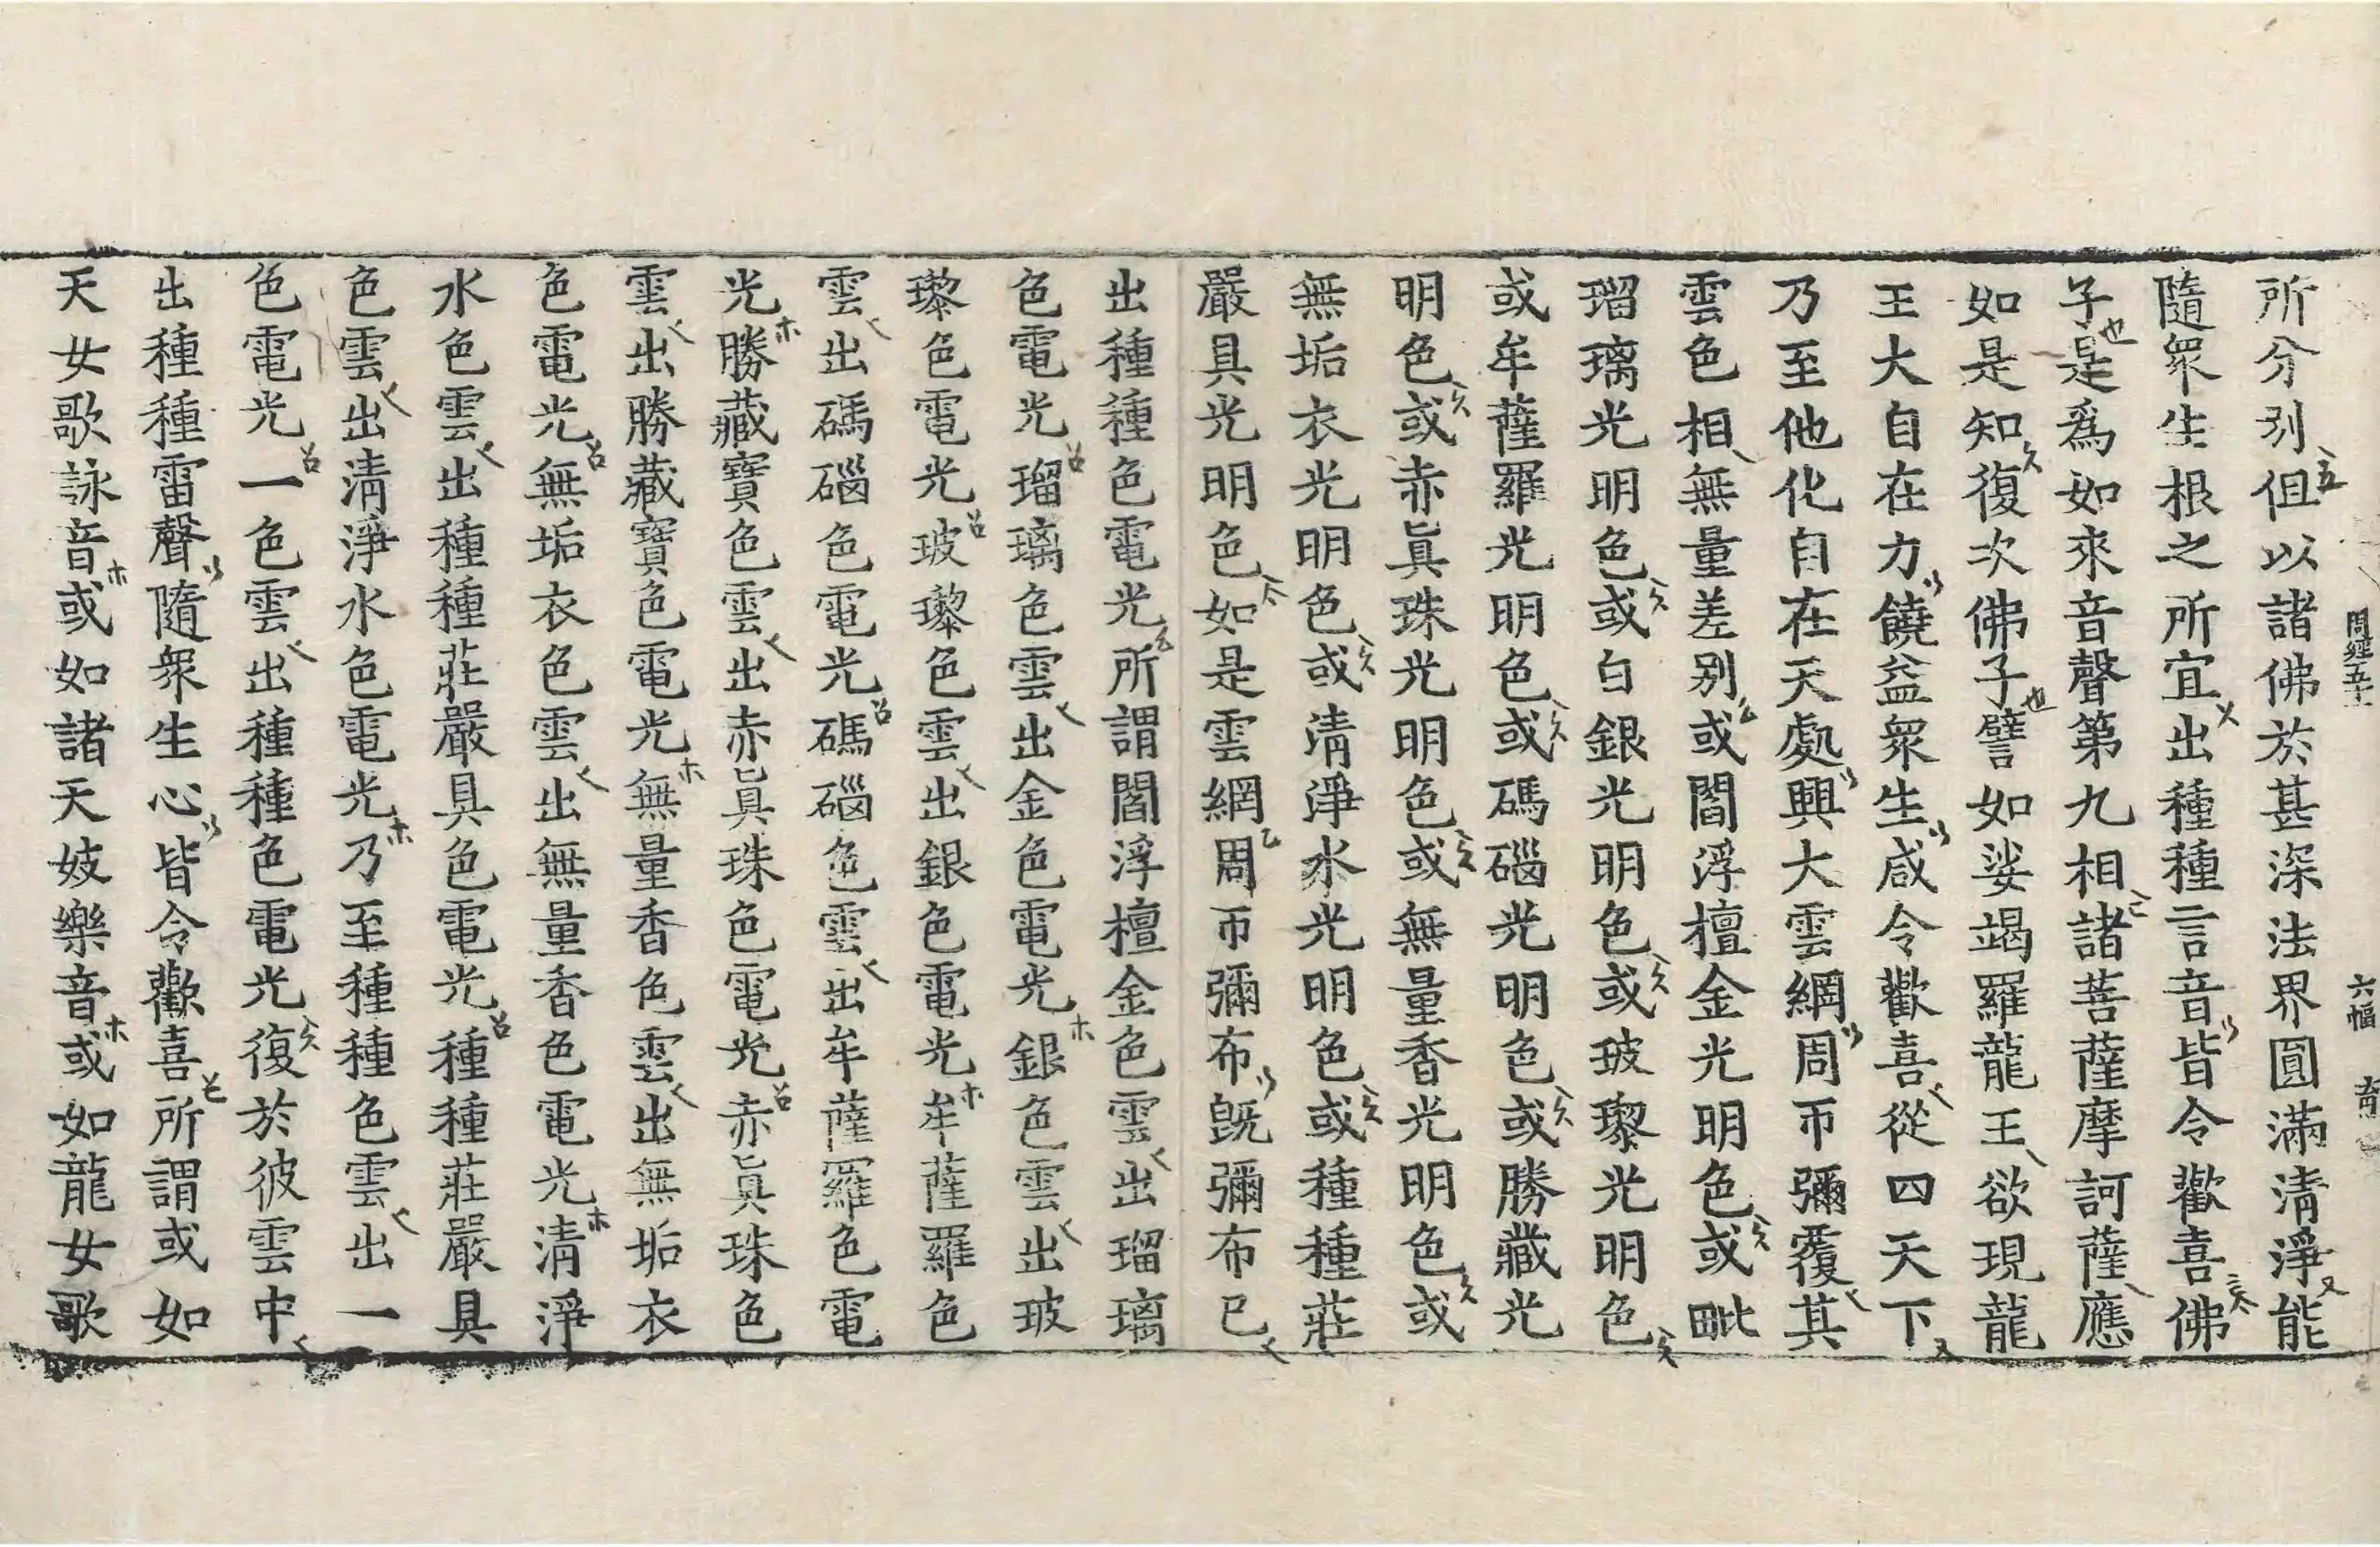 周經五十
六幅
所分別但以諸佛於甚深法界圓滿清淨能
隨衆生根之所宜出種種言音皆令歡喜佛
子是爲如來音聲第九相諸菩薩摩訶薩應
如是知復次佛子譬如娑竭羅龍王欲現龍
王大自在力饒益衆生咸令歡喜從四天下
乃至他化自在天處興大雲網周帀彌覆其
雲色相無量差別或閻浮檀金光明色或毗
瑠璃光明色或白銀光明色或玻瓈光明色
或牟薩羅光明色或碼碯光明色或勝藏光
明色或赤眞珠光明色或無量香光明色或
無垢衣光明色或清淨水光明色或種種莊
嚴具光明色如是雲網周帀彌布旣彌布已
出種種色電光所謂閻浮檀金色雲出瑠璃
色電光瑠璃色雲出金色電光銀色雲出玻
瓈色電光玻瓈色雲出銀色電光牟薩羅色
雲出碼碯色電光碼碯色雲出牟薩羅色電
光勝藏寶色雲出赤眞珠色電光赤眞珠色
雲出勝藏寶色電光無量香色雲出無垢衣
色電光無垢衣色雲出無量香色電光清淨
水色雲出種種莊嚴具色電光種種莊嚴具
色雲出清淨水色電光乃至種種色雲出一
色電光一色雲出種種色電光復於彼雲中
出種種雷聲隨衆生心皆令歡喜所謂或如
天女歌詠音或如諸天妓樂音或如龍女歌